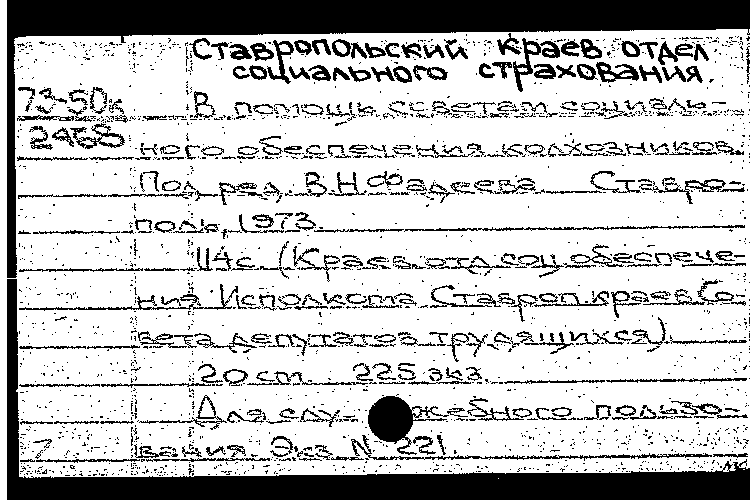 Ставропольский краев. отдел
социального страхования.
73-50к В помощь советам социаль-
2468 ного обеспечения колхозников.
Под ред. В.Н.Фадеева Ставро-
поль, 1973
114с. (Краев. отд. соц. обеспече-
ния Исполкома Ставроп. краев. Со-
вета депутатов трудящихся).
20 см. 225 экз.
Для слу- жебного пользо-
вания. Экз. N 221.